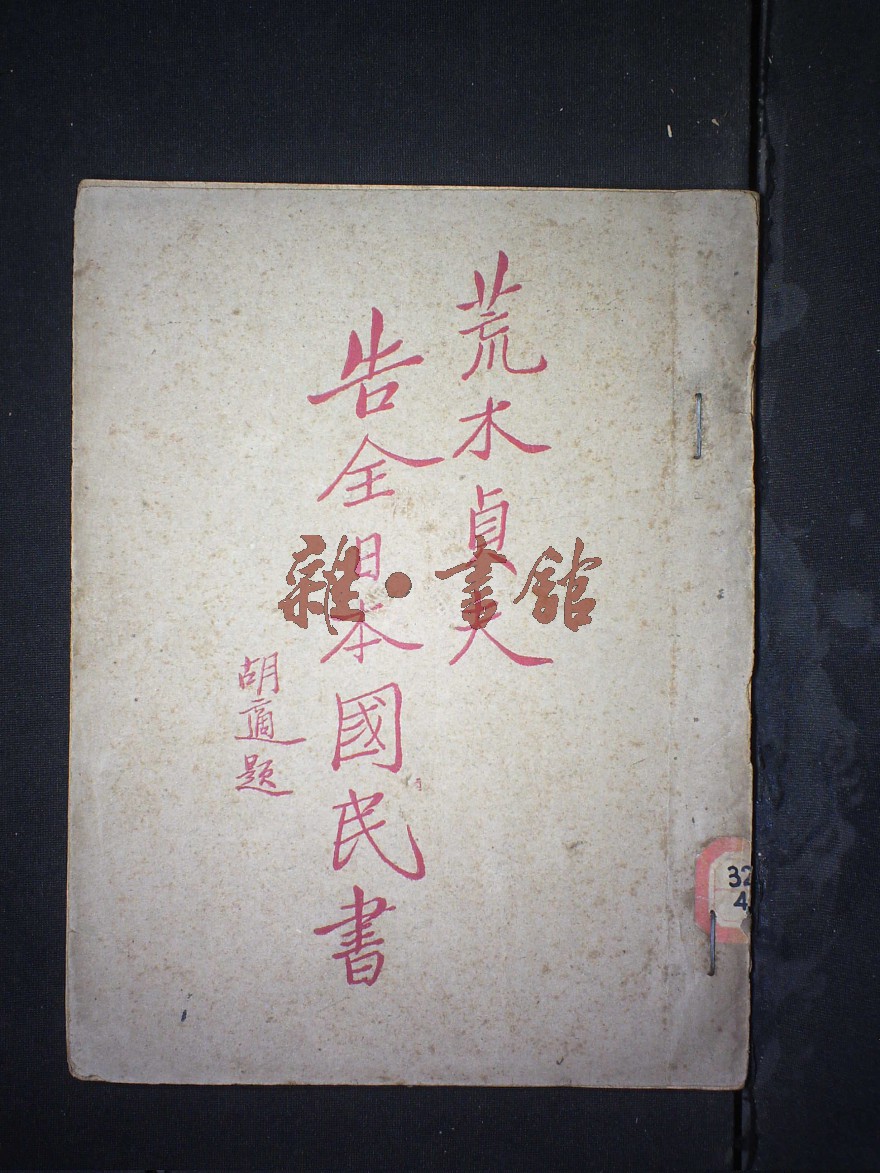 荒木貞夫
告全日本國民書
胡適題
雜·書館
32
4